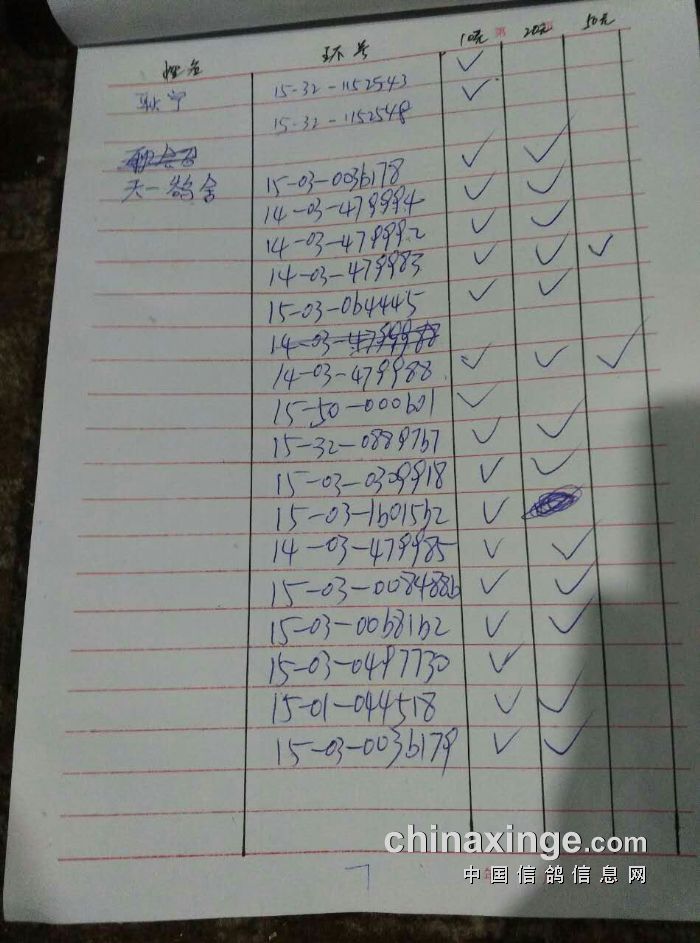 姓名 环号 10元 20元 50元
耿宁 15-32-1152543 ✓
15-32-1152548 ✓
天一鸽舍 15-03-0036178 ✓ ✓
14-03-479994 ✓ ✓
14-03-479992 ✓ ✓
14-03-479983 ✓ ✓ ✓
15-03-064445 ✓ ✓
14-03-479988
14-03-479988 ✓ ✓ ✓
15-50-000601 ✓
15-32-0889767 ✓ ✓
15-03-0309918 ✓ ✓
15-03-1601562 ✓
14-03-479985 ✓ ✓
15-03-0084886 ✓ ✓
15-03-0068162 ✓ ✓
15-03-0497730 ✓
15-01-044518 ✓ ✓
15-03-0036179 ✓ ✓
chinaxinge.com
中国信鸽信息网
7